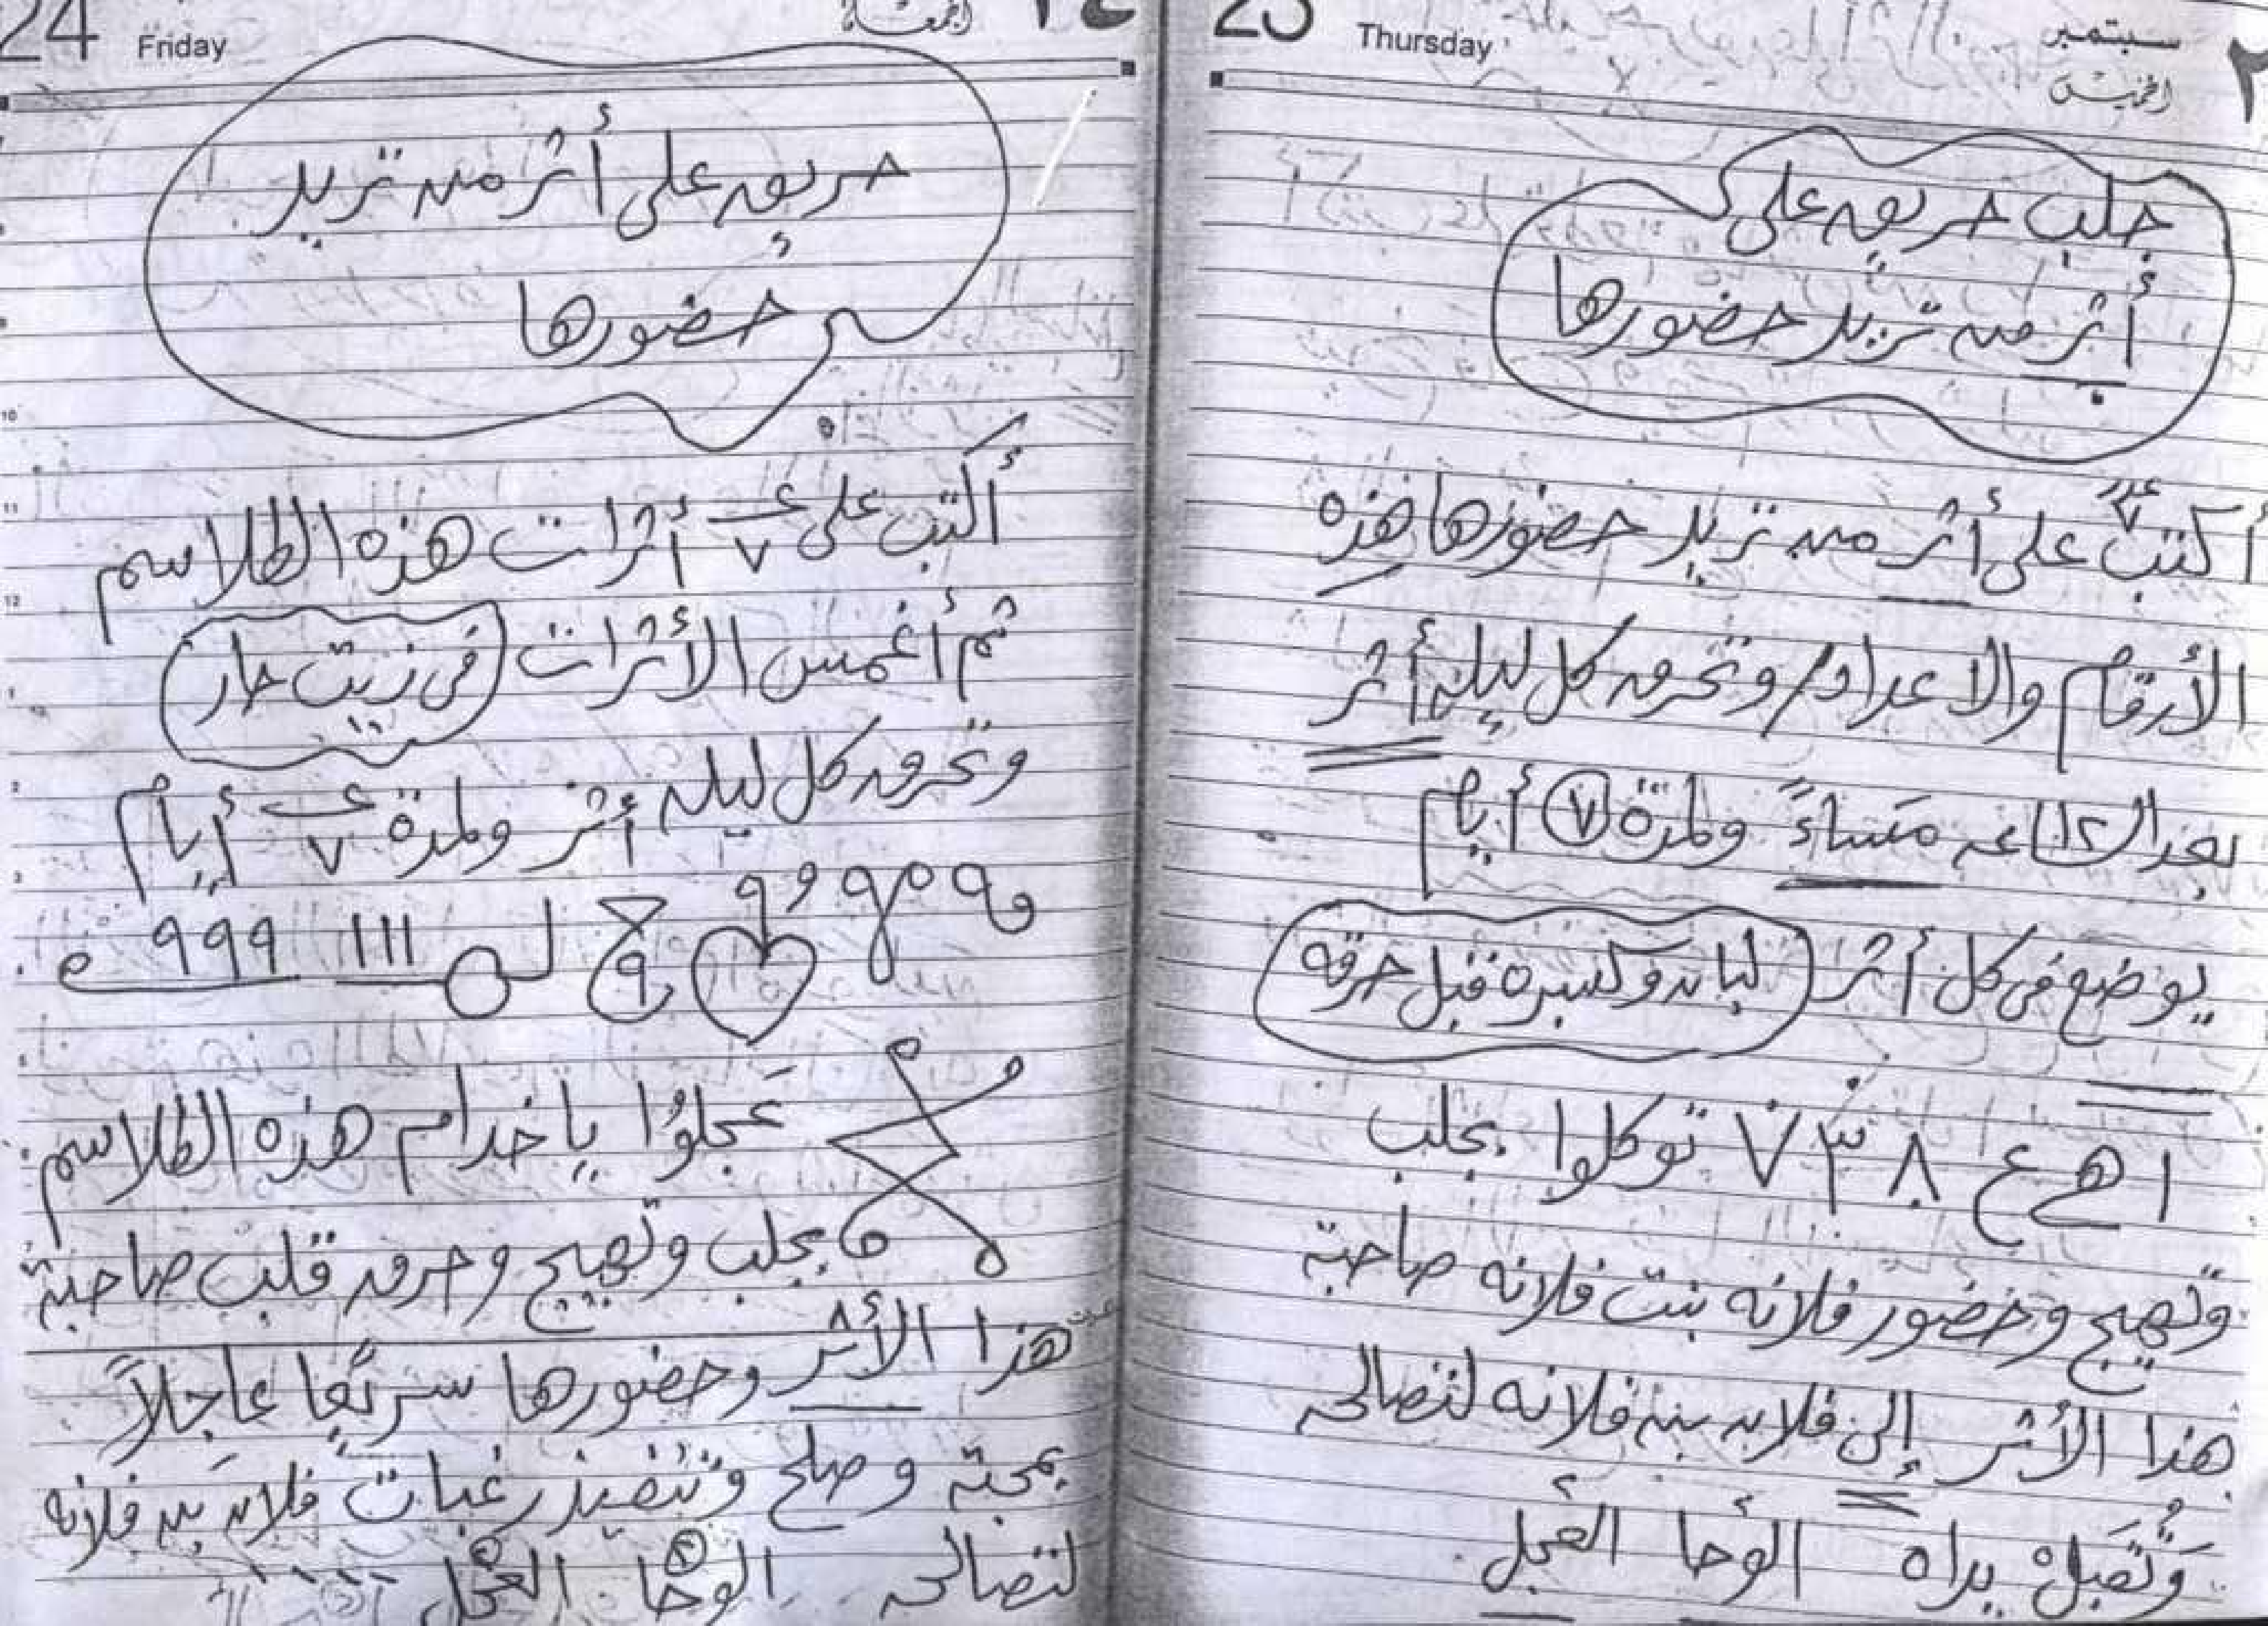 سبتمبر
23 Thursday الخميس
جلب حريق على
أثر من تريد حضورها
أكتب عدد ٧ على أثر من تريد حضورها هذه
الأرقام والاعداد وتحرق كل ليله أثر
بعد الـ ١٢ ساعه مَساءً ولمدة ٧ أيام
يوضع فى كل أثر لبان وكسبره قبل حرقه
١ هـ ع ٨ ٣ ٧ توكلوا بجلب
وتهيج وحضور فلانه بنت فلانه صاحبة
هذا الأثر إلى فلان بن فلانه لتصالحه
وتُقَبل يداه الوحا العجل
24 Friday الجمعة ٢٤
حريق على أثر من تريد
حضورها
أكتب على عدد ٧ أثرات هذه الطلاسم
ثم أغمس الأثرات فى زيت حار
وتحرق كل ليله أثر ولمدة عدد ٧ أيام
٩٩٩ ١١١
عَجلوُا يا خدام هذه الطلاسم
بجلب وتهيج وحرق قلب صاحبة
هذا الأثر وحضورها سريعًا عاجلاً
بمحبة وصلح وتنفيذ رغبات فلان بن فلانه
لتصالحه الوحا ٢ العجل